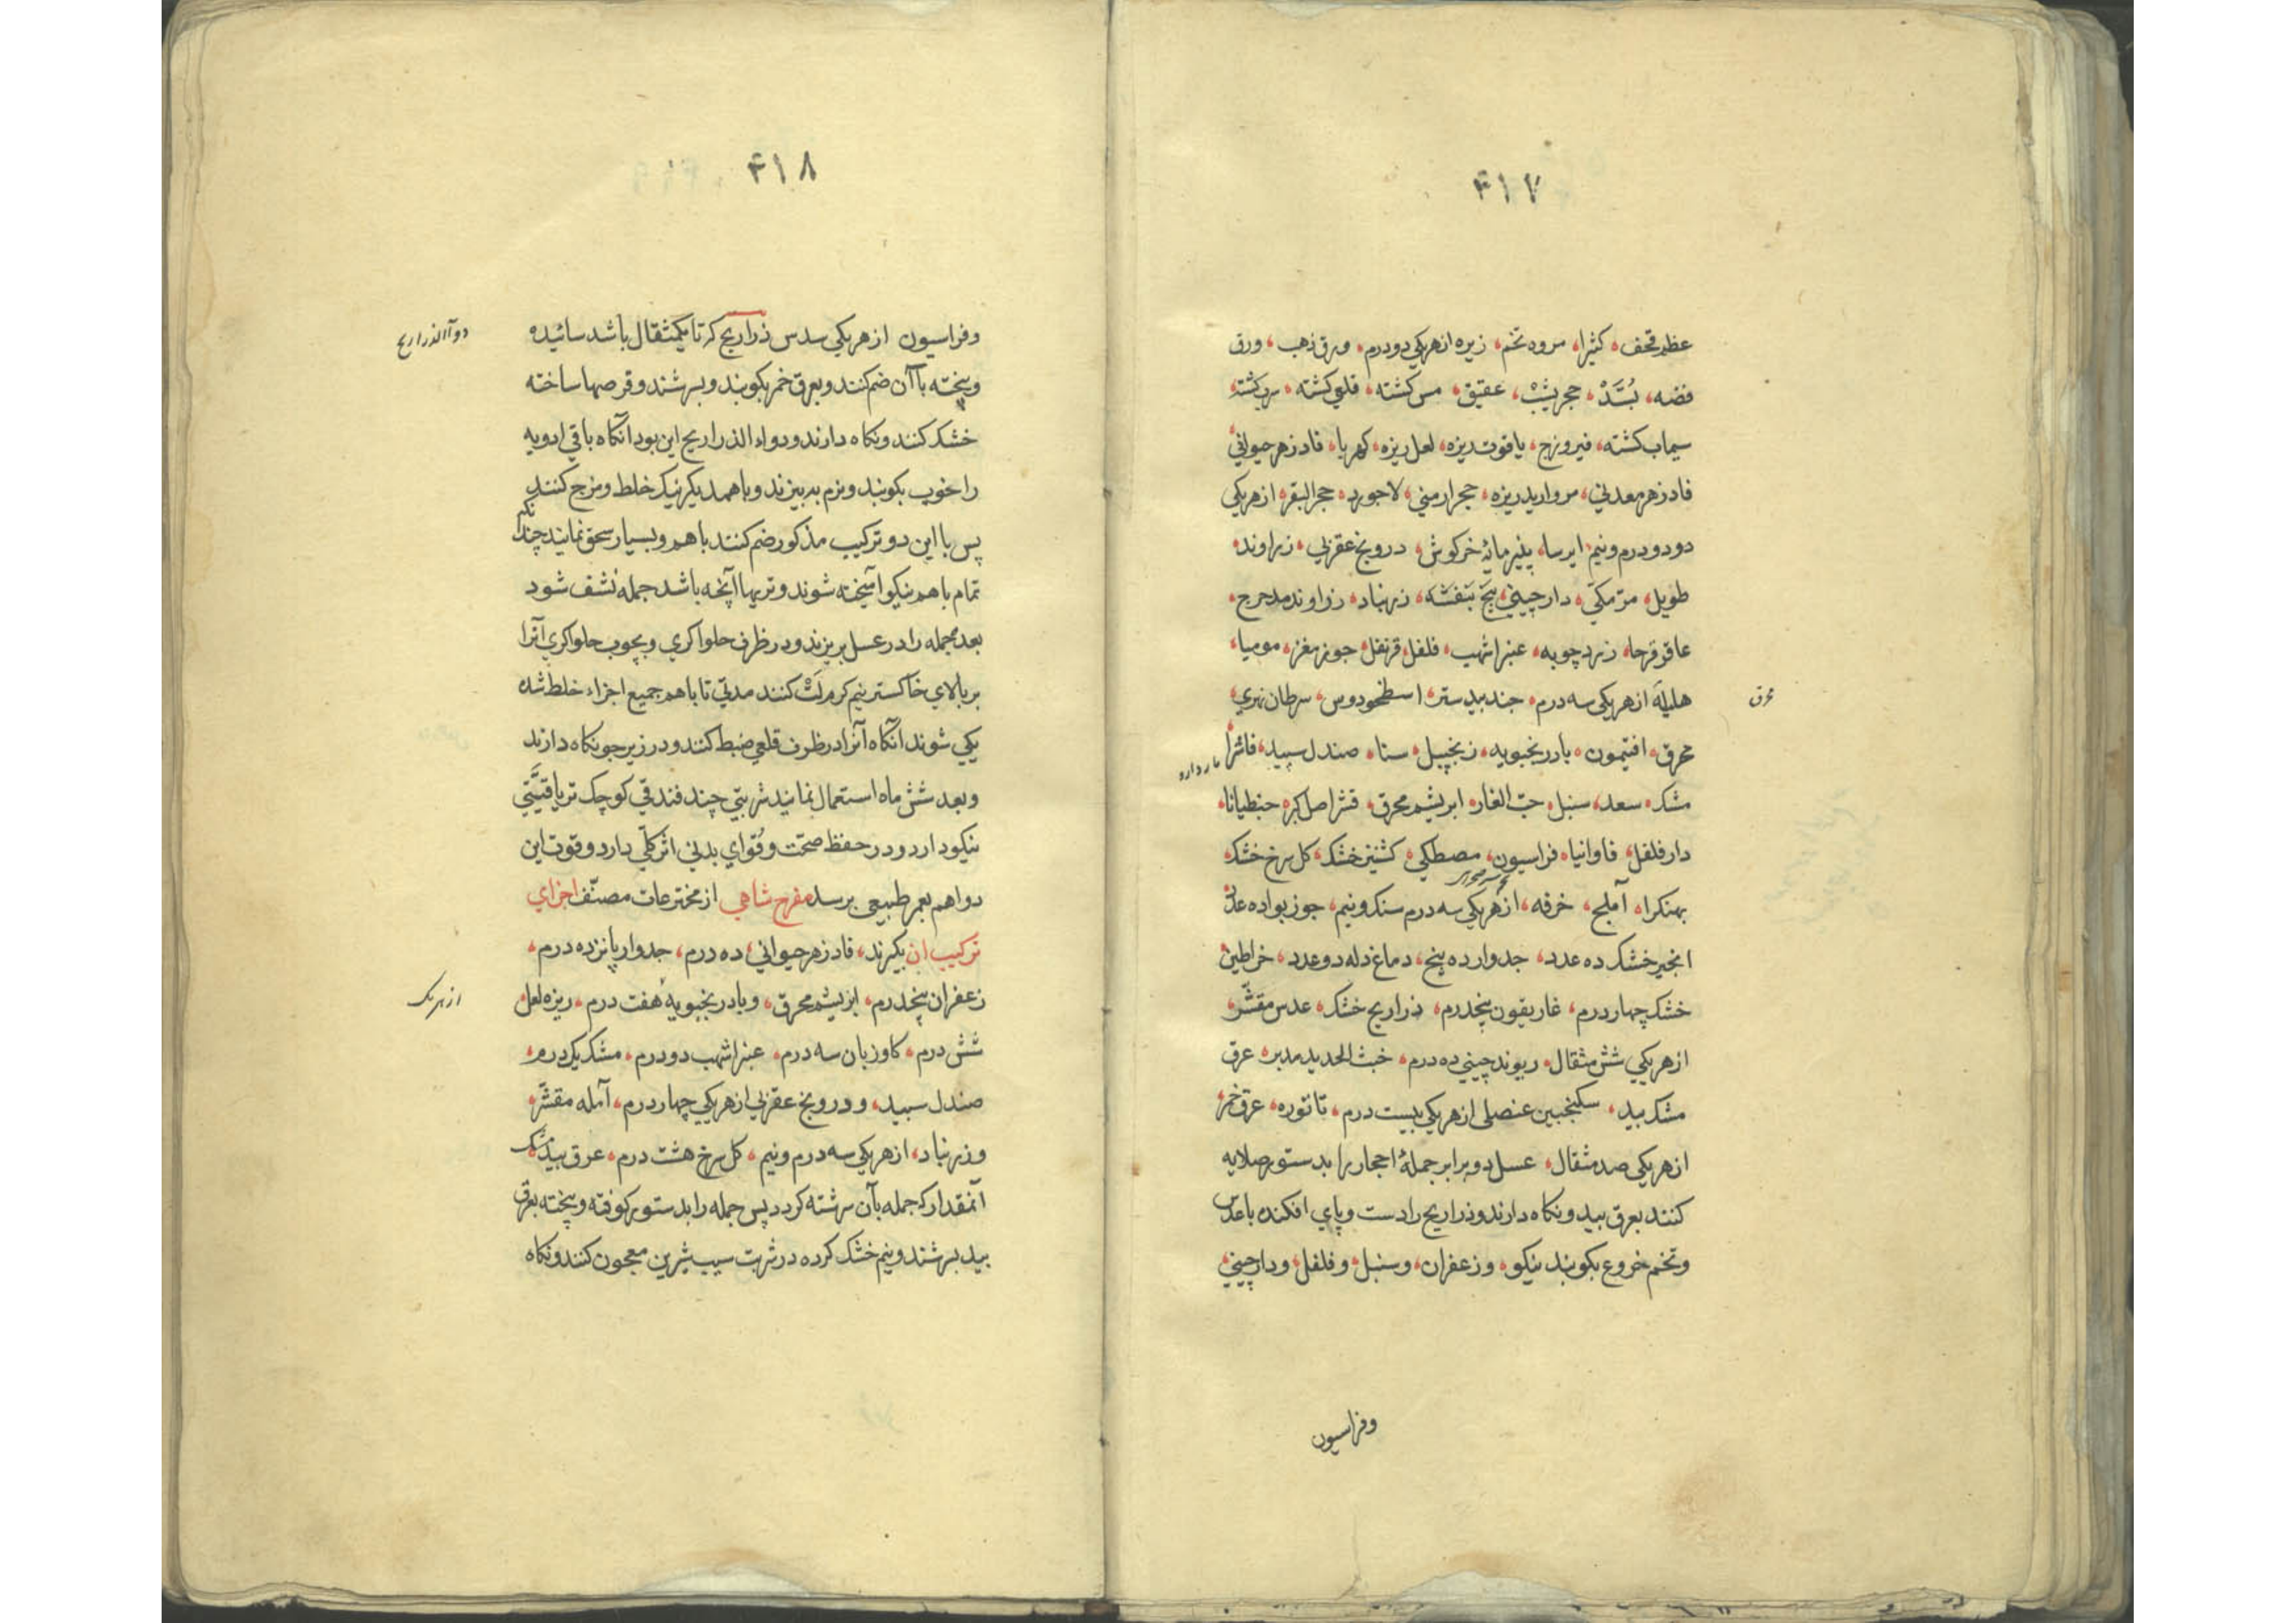 ۴۱۷
عظم قحف، کثیرا، مرود تخم، زیره ازهریکی دودرم، ورق ذهب، ورق
فضه، بُسَّدْ، حجریشب، عقیق، مس کشته، قلعی کشته، سرب کشته،
سیماب کشته، فیروزج، یاقوت ریزه، لعل ریزه، کهربا، فادزهرحیوانی،
فادزهرمعدنی، مرواریدریزه، حجرارمنی، لاجورد، حجرالبقر، ازهریکی
دودودرم ونیم، ایرسا، پنیرمایهٔ خرکوش، درونج عقربی، زراوند
طویل، مرّمکّی، دارچینی، بیخ بَنَفشَه، زرنباد، زراوندمدحرج،
عاقرقرحا، زردچوبه، عنبراشهب، فلفل، قرنفل، جوزمغز، مومیا،
هلیله ازهریکی سه درم، جندبیدستر، اسطخودوس، سرطان نهری،
محرق
محرق، افتیمون، بادرنجبویه، زنجبیل، سنا، صندل سپید، فاشرا،
ماردارو
مشک، سعد، سنبل، حبّ الغار، ابریشم محرق، قشراصل کبر، جنطیانا،
دارفلفل، فاوانیا، فراسیون، مصطکی، کشنیزخشک، کل سرخ خشک،
بهنکرا، آملج، خرفه، ازهریکی سه درم سنک ونیم، جوزبواده عدد،
انجیرخشک ده عدد، جدوارده پنج، دماغ دله دوعدد، خراطین
خشک چهاردرم، غاریقون پنجدرم، ذراریح خشک، عدس مقشّر،
ازهریکی شش مثقال، ریوندچینی ده درم، خبث الحدیدمدبر، عرق
مشک بید، سکنجبین عنصلی ازهریکی بیست درم، تاتوره، عرق خمر،
ازهریکی صدمثقال، عسل دوبرابرجملهٔ احجاررا بدستورصلایه
کنند بعرق بید ونکاه دارند وذراریح رادست وپای افکنده باعدس
وتخم خروع بکوبند نیکو، وزعفران، وسنبل، وفلفل، ودارچینی،
وفراسیون
۴۱۸
وفراسیون ازهریکی سدس ذراریح که تایکمثقال باشد سائیده
دوآالذراریح
وپخته باآن ضم کنند وبعرق خمربکوبند وبسرشند وقرصها ساخته
خشک کنند ونکاه دارند ودواء الذراریح این بود آنکاه باقی ادویه
راخوب بکوبند ونرم به بیزند وباهمدیکرنیک خلط ومزج کنند
پس بااین دوترکیب مذکورضم کنند باهم وبسیارسحق نمایند چندانکه
تمام باهم نیکوآمیخته شوند وتریهاآنچه باشد جمله نشف شود
بعدجمله رادرعسل بریزند ودرظرف حلواکری وبچوب حلواکری آنرا
بربالای خاکسترنیم کرم لَتْ کنند مدتی تاباهم جمیع اجزاء خلط شده
یکی شوند آنکاه آنرادرظرف قلعی ضبط کنند ودرزیرجونکاه دارند
وبعد شش ماه استعمال نمایند شربتی چند فندقی کوچک تریاقیّتی
نیکودارد ودرحفظ صحّت وقوای بدنی اثرکلّی دارد وقوت این
دواهم بعمرطبیعی برسد مفرح شاهی ازمخترعات مصنّف اجزای
ترکیب ان بکیرند، فادزهرحیوانی، ده درم، جدوارپانزده درم،
زعفران پنجدرم، ابریشم محرق، وبادرنجبویه، هفت درم، ریزه لعل
ازهریک
شش درم، کاوزبان سه درم، عنبراشهب دودرم، مشک یکدرم،
صندل سپید، ودرونج عقربی ازهریکی چهاردرم، آمله مقشّر،
وزرنباد، ازهریکی سه درم ونیم، کل سرخ هشت درم، عرق بیدمشک،
آنمقدارکه جمله بآن سرشته کردد پس جمله رابدستورکوفته وپخته بعرق
بید بسرشند ونیم خشک کرده درشربت سیب شیرین معجون کنند ونکاه